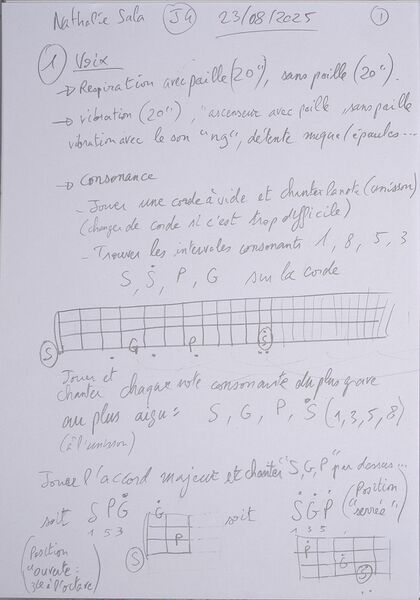 Nathalie Sala J4 23/08/2025 1
1 Voix
→ Respiration avec paille (20"), sans paille (20").
→ vibration (20"), "ascenseur avec paille, sans paille
vibration avec le son "ng", détente nuque/épaules...
→ Consonance
- Jouer une corde à vide et chanter la note (unisson)
(changer de corde si c'est trop difficile)
- Trouver les intervales consonants 1, 8, 5, 3
S, Ṡ, P, G sur la corde
S G P Ṡ
Jouer et
chanter chaque note consonante du plus grave
au plus aigu = S, G, P, Ṡ (1,3,5,8)
(à l'unisson)
Jouer l'accord majeur et chanter "S, G, P" par dessus...
soit S P Ġ
1 5 3
Ġ
P
S
(Position
"ouverte:
3ce à l'octave)
soit Ṡ Ġ Ṗ
1 3 5
(Position
"serrée")
Ṗ
Ġ
S